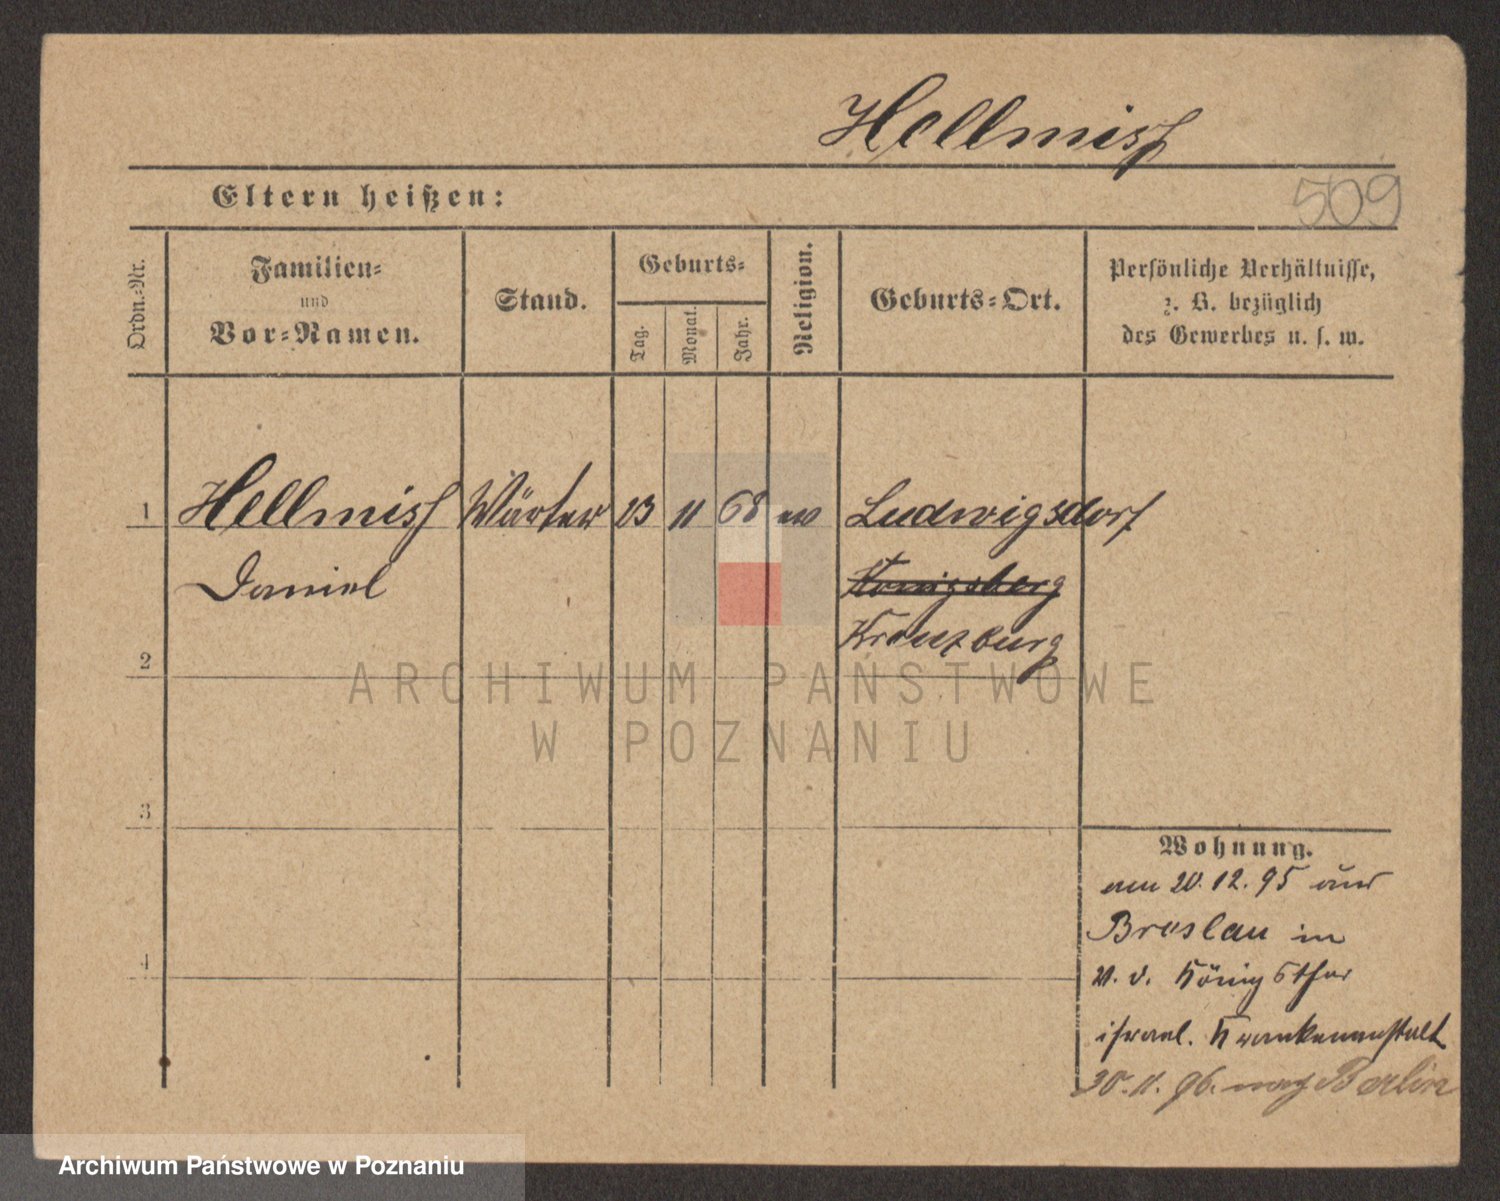 Hellmich
Eltern heißen:
509
Ordn.-Nr.
Familien-
und
Vor-Namen.
Stand.
Geburts-
Tag.
Monat.
Jahr.
Religion.
Geburts-Ort.
Persönliche Verhältnisse,
z. B. bezüglich
des Gewerbes u. s. w.
1 Hellmich Wärter 23 11 68 ev Ludwigsdorf
Daniel Königsberg
Kreuzburg
2
ARCHIWUM PAŃSTWOWE
W POZNANIU
3
Wohnung.
am 20.12.95 aus
Breslau in
4
v. d. Königsthor
israel. Krankenanstalt
30.11.96. nach Berlin
Archiwum Państwowe w Poznaniu